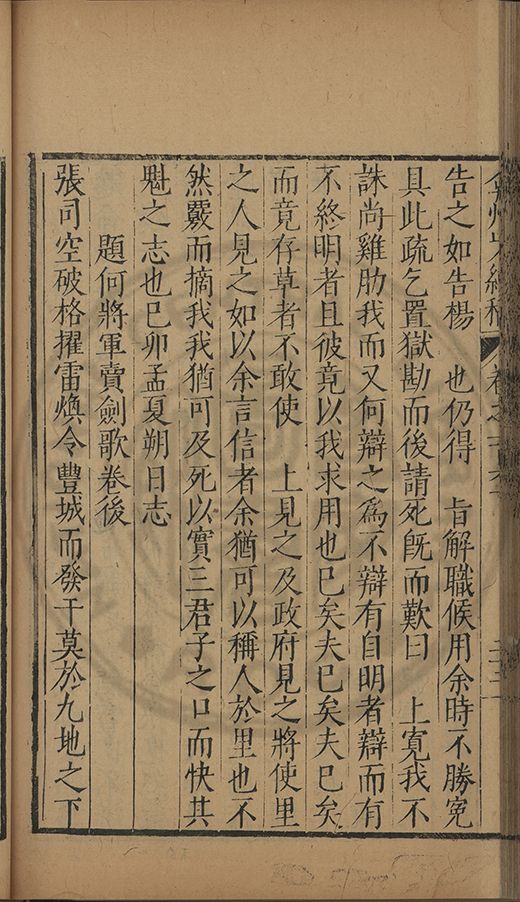 告之如告楊　也仍得　旨解職候用余時不勝寃
具此疏乞置獄勘而後請死旣而歎曰　上寬我不
誅尚雞肋我而又何辯之為不辯有自明者辯而有
不終明者且彼竟以我求用也已矣夫已矣夫已矣
而竟存草者不敢使　上見之及政府見之將使里
之人見之如以余言信者余猶可以稱人於里也不
然覈而摘我我猶可及死以實三君子之口而快其
魁之志也已卯孟夏朔日志
題何將軍賣劍歌卷後
張司空破格擢雷煥令豐城而發干莫於九地之下